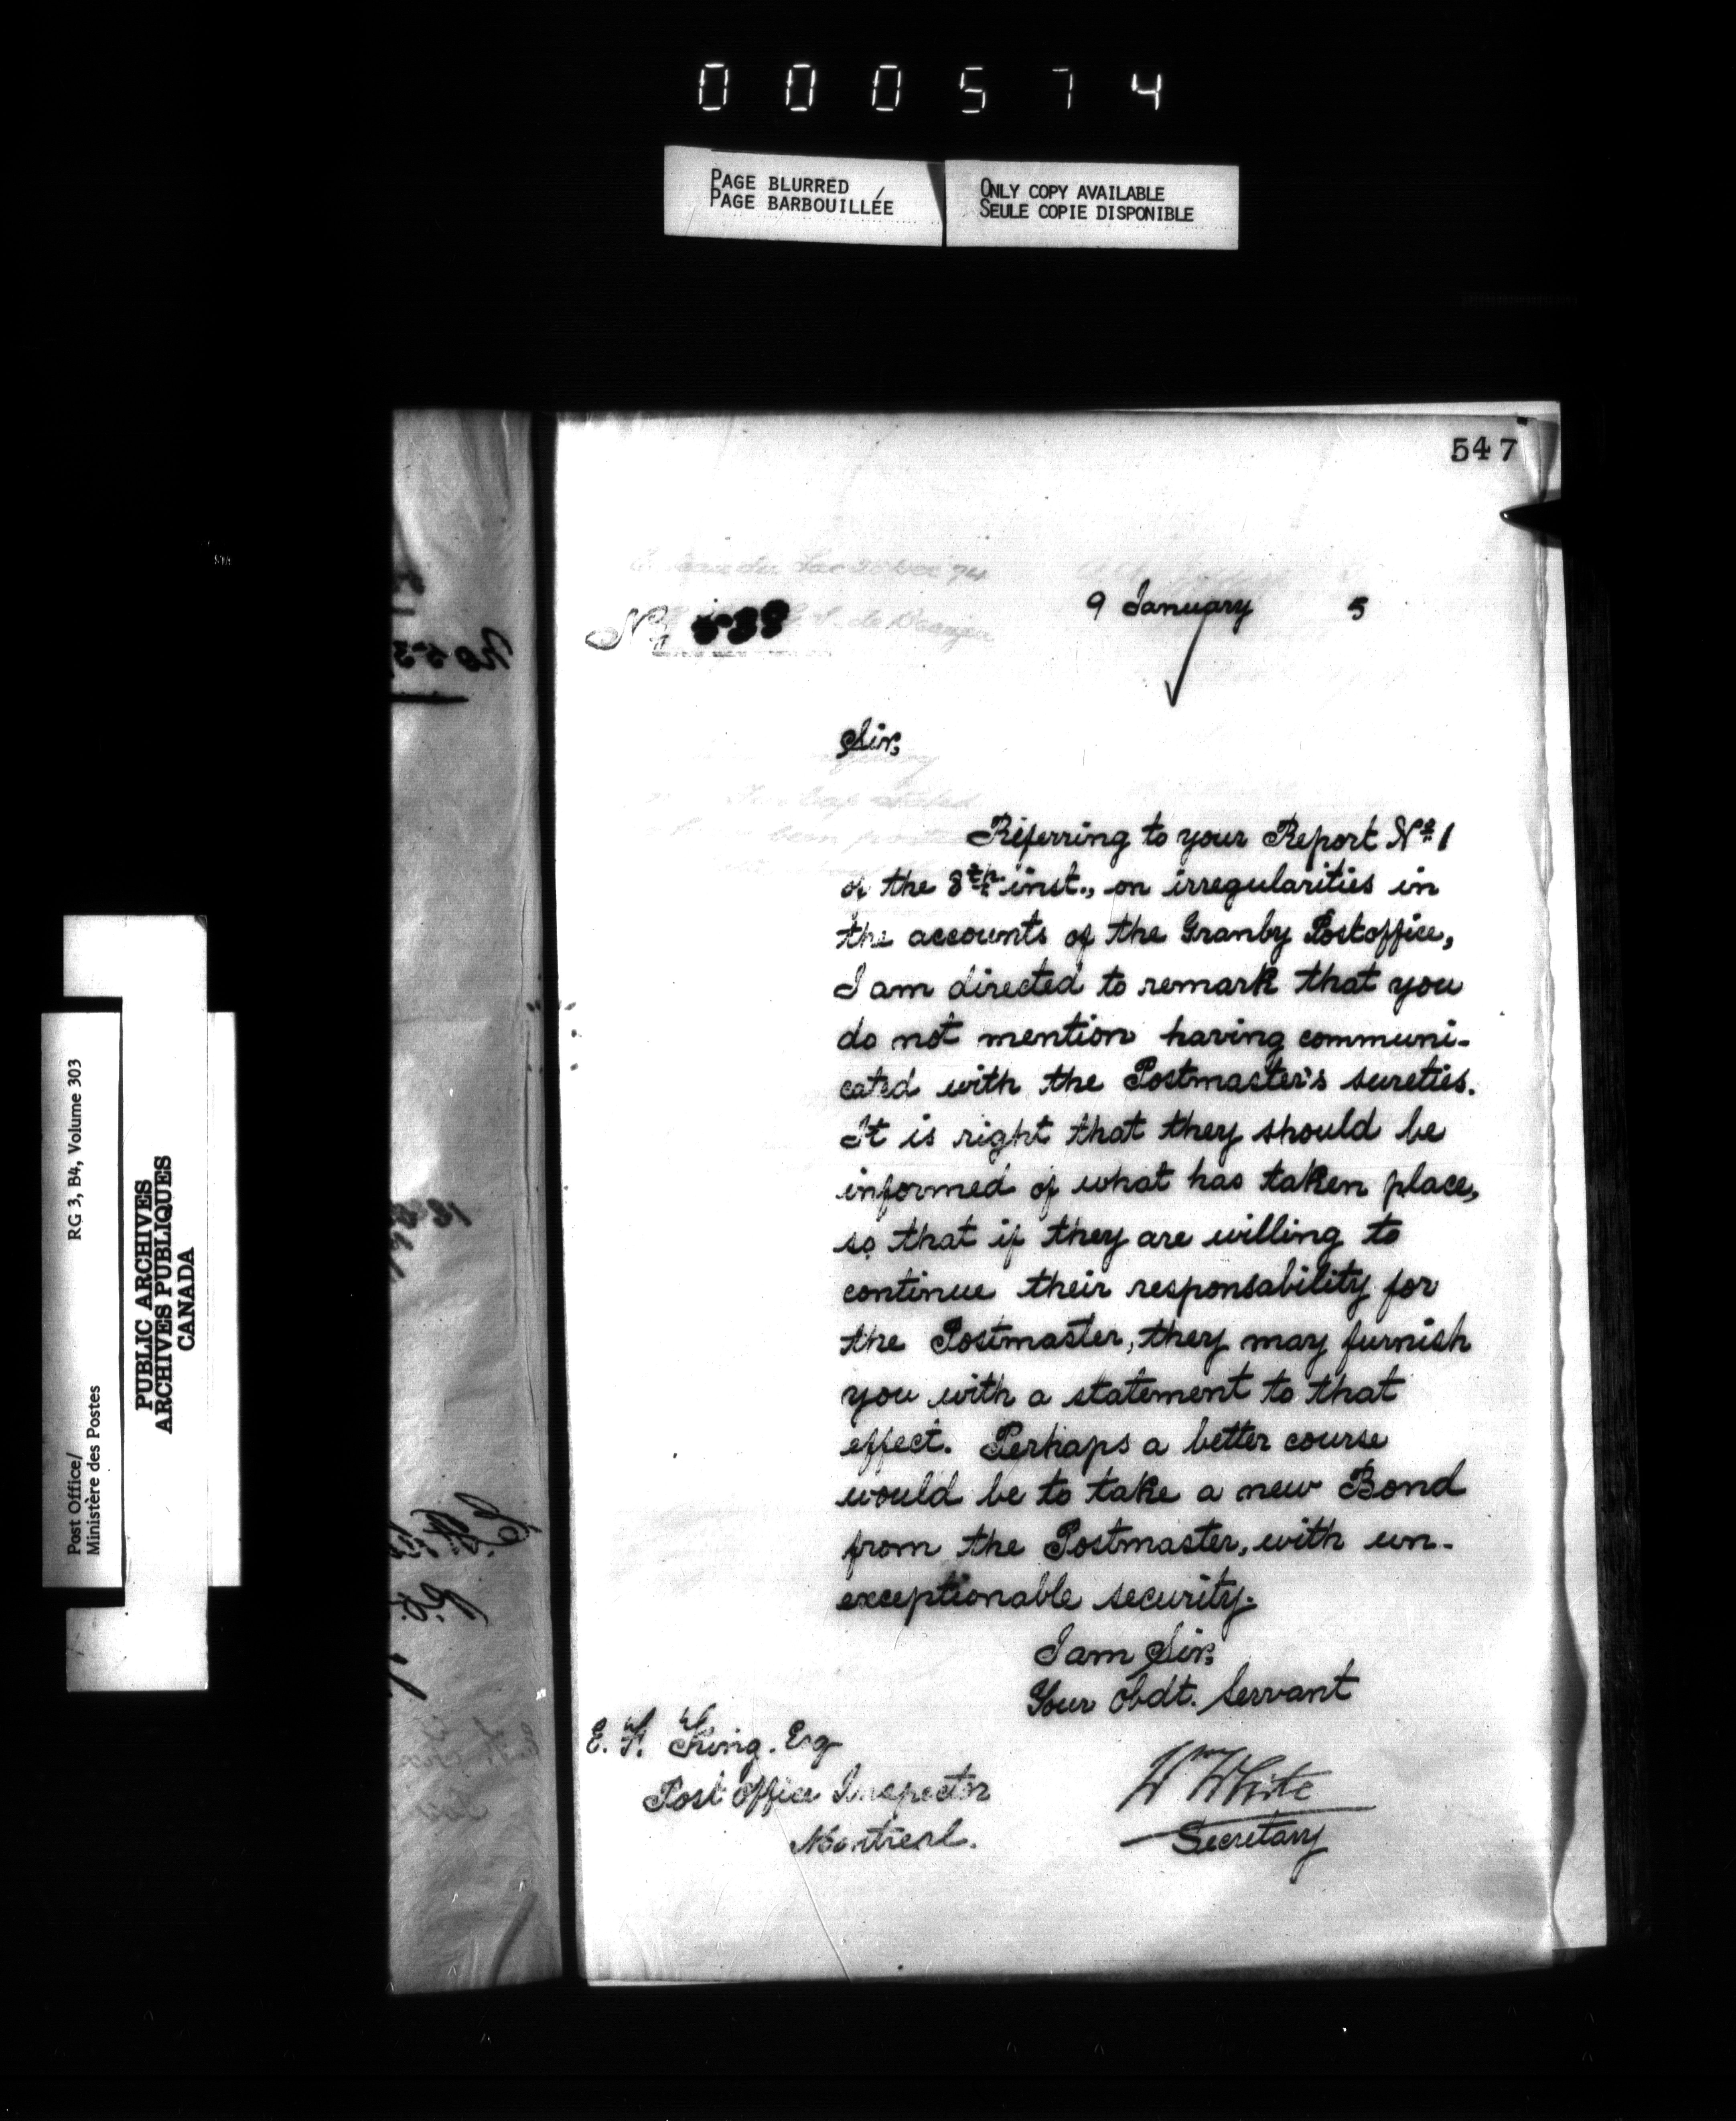 000574
PAGE BLURRED
PAGE BARBOUILLÉE
ONLY COPY AVAILABLE
SEULE COPIE DISPONIBLE
547
9 January 5
Sir,
Referring to your Report No. 1
of the 8th inst., on irregularities in
the accounts of the Granby Postoffice,
I am directed to remark that you
do not mention having communi-
cated with the Postmaster's sureties.
It is right that they should be
informed of what has taken place,
so that if they are willing to
continue their responsability for
the Postmaster, they may furnish
you with a statement to that
effect. Perhaps a better course
would be to take a new Bond
from the Postmaster, with un-
exceptionable security.
I am Sir,
Your Obdt. Servant
E. F. King. Esq
Post Office Inspector
Montreal.
Wm White
Secretary
Post Office/
Ministère des Postes
RG 3, B4, Volume 303
PUBLIC ARCHIVES
ARCHIVES PUBLIQUES
CANADA